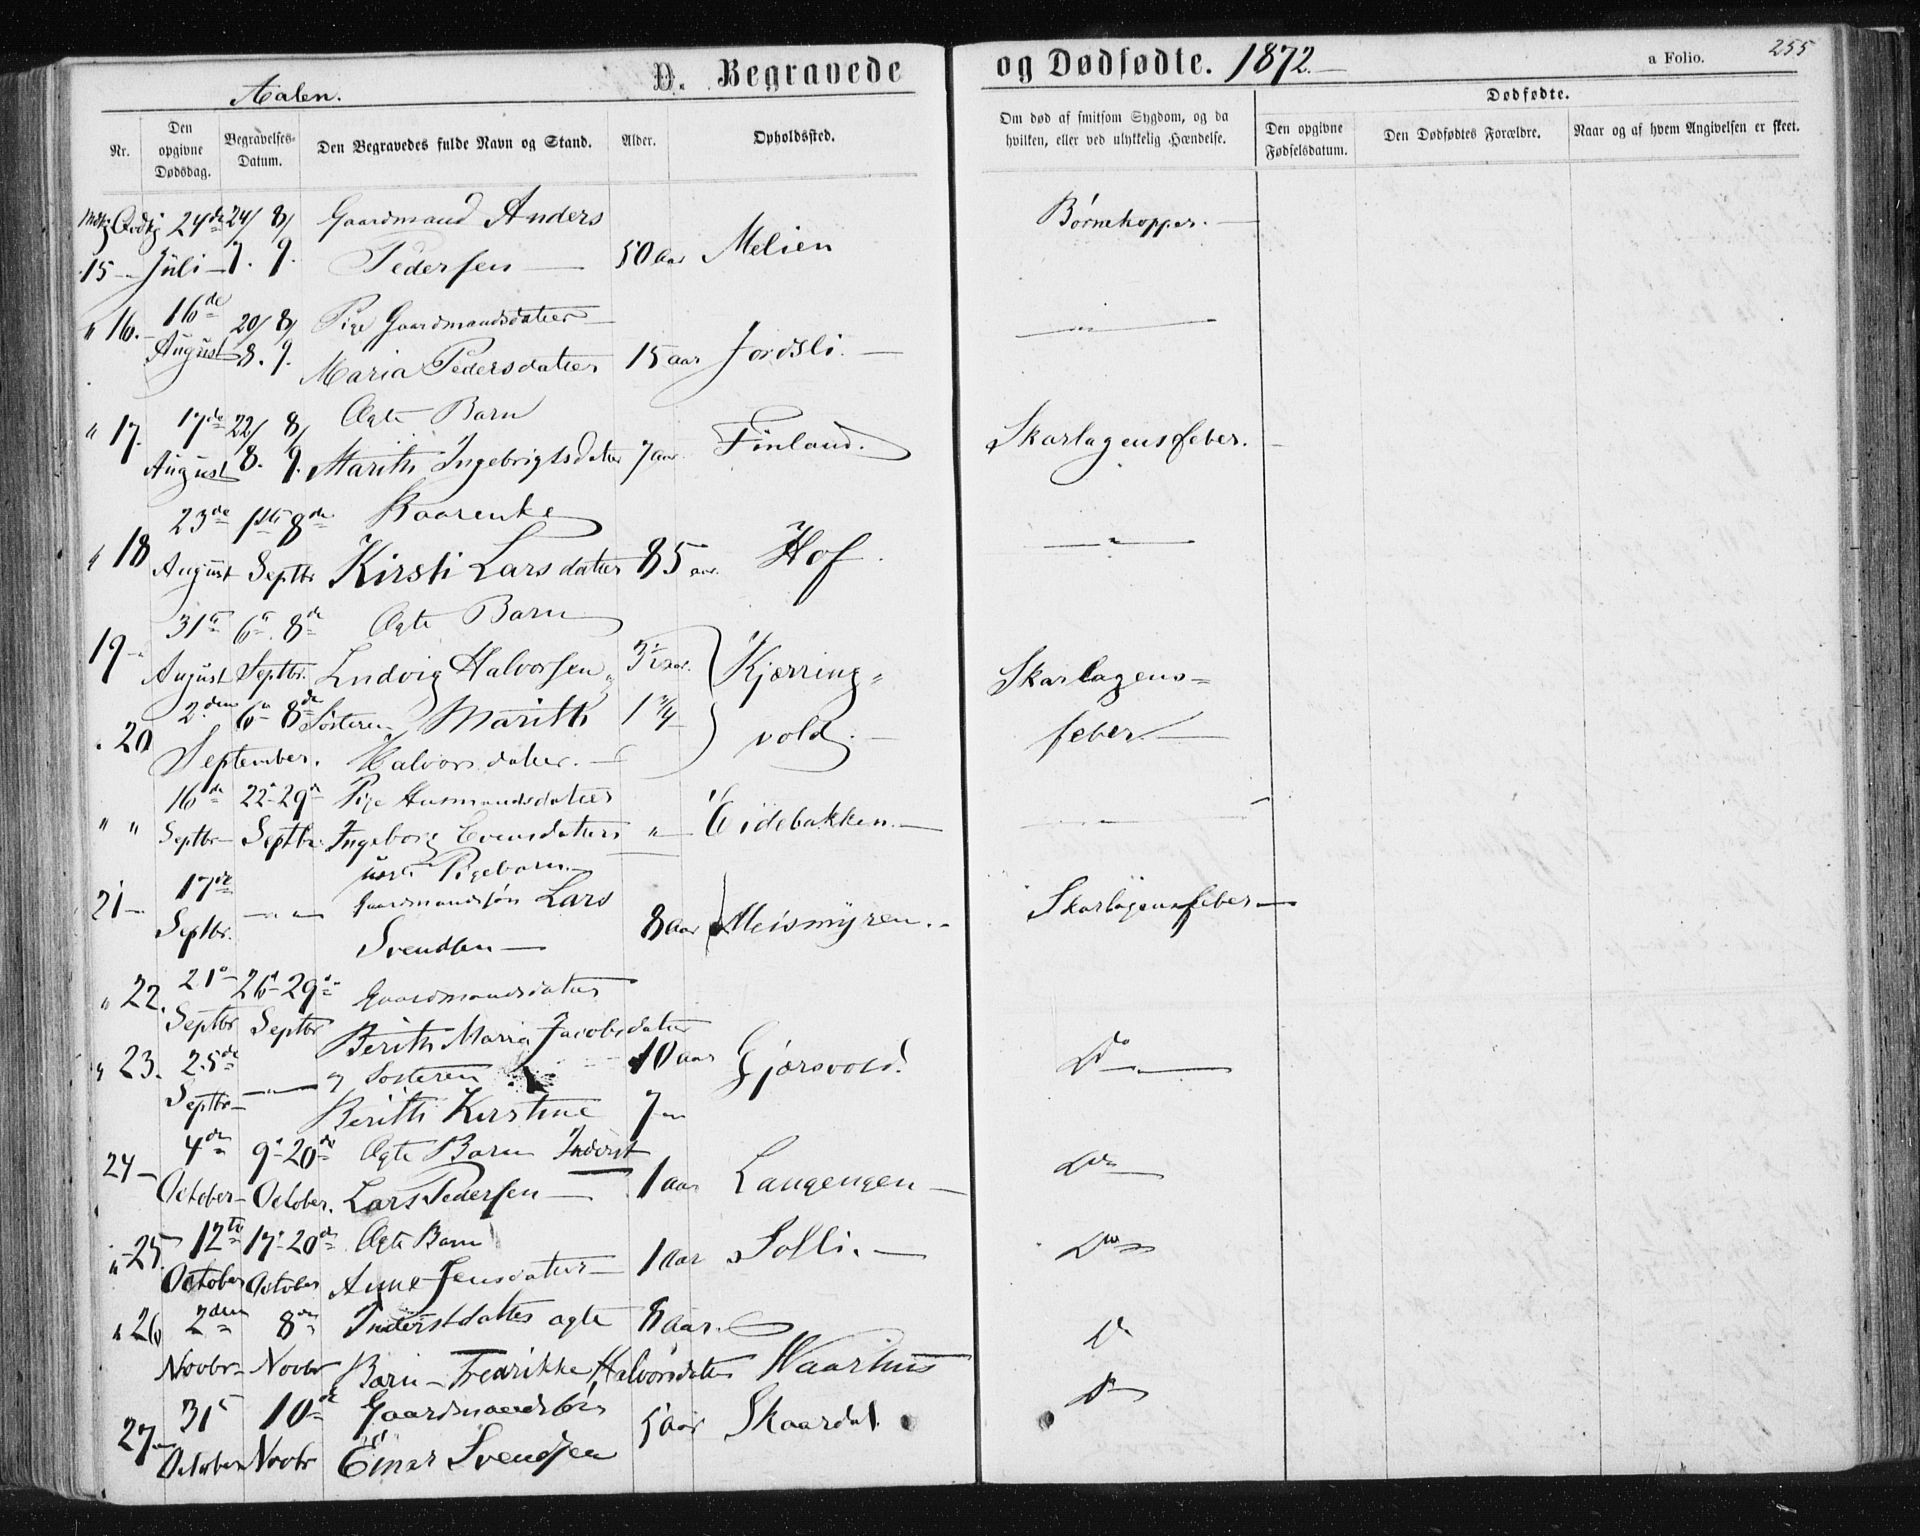 Aalen.
D. Begravede og Dødfødte. 1872.
a Folio. 255
Nr.
Den opgivne Dødsdag.
Begravelses-Datum.
Den Begravedes fulde Navn og Stand.
Alder.
Opholdssted.
Om død af smitsom Sygdom, og da hvilken, eller ved ulykkelig Hændelse.
Dødfødte.
Den opgivne Fødselsdatum.
Den Dødfødtes Forældre.
Naar og af hvem Angivelsen er skeet.
24de 24/ 8/ Gaardmand Anders Børnekopper.
15 Juli 7. 9. Pedersen 50 aar Melien
16de
" 16. 20/ 8/ Pige Gaardmandsdatter
August 8. 9. Maria Pedersdatter 15 aar Jordsli.
17de 22/ 8/ Ægte Barn
" 17. August 8. 9. Marith Ingebrigtsdatter 7 aar Finland. Skarlagensfeber.
23de 1ste 8de Kaarenke
" 18 August Septbr Kirsti Larsdatter 85 aar Hof.
31te 6te 8de Ægte Barn
19 August Septbr. Ludvig Halvorsen Kjerring-
Skarlagens-
2den 6te 8de Søsteren Marith 1 3/4
20 September. Halvorsdatter. vold. feber.
16de 22de 29de Pige Husmandsdatter
" " Septbr Septbr. Ingeborg Evensdatter " Eidebakken.
Pigebarn
17de
21 Septbr. Gaardmandsøn Lars
Svendsen 8 aar Meismyren. Skarlagensfeber
21 26 29 Gaardmandsdatter
" 22. Septbr Septbr Berith Maria Jacobsdatter
" 23. 25de Søsteren 10 aar Gjersvold. Do
Septbr Berith Kirstine 7
4de 9 20de Ægte Barn Inderst
24 October October. Lars Pedersen 1 aar Langengen Do
12te 17 20de Ægte Barn
" 25. October October Anne Jensdatter 1 aar Solli. Do
" 26 2den 8de Inderstdatter ægte 8 aar. Do
Novbr Novbr Barn Fredrikke Halvorsdatter Haarhus
31 10de Gaardmandsøn Do
27 October Novbr Einar Svendsen 5 aar Skaardal